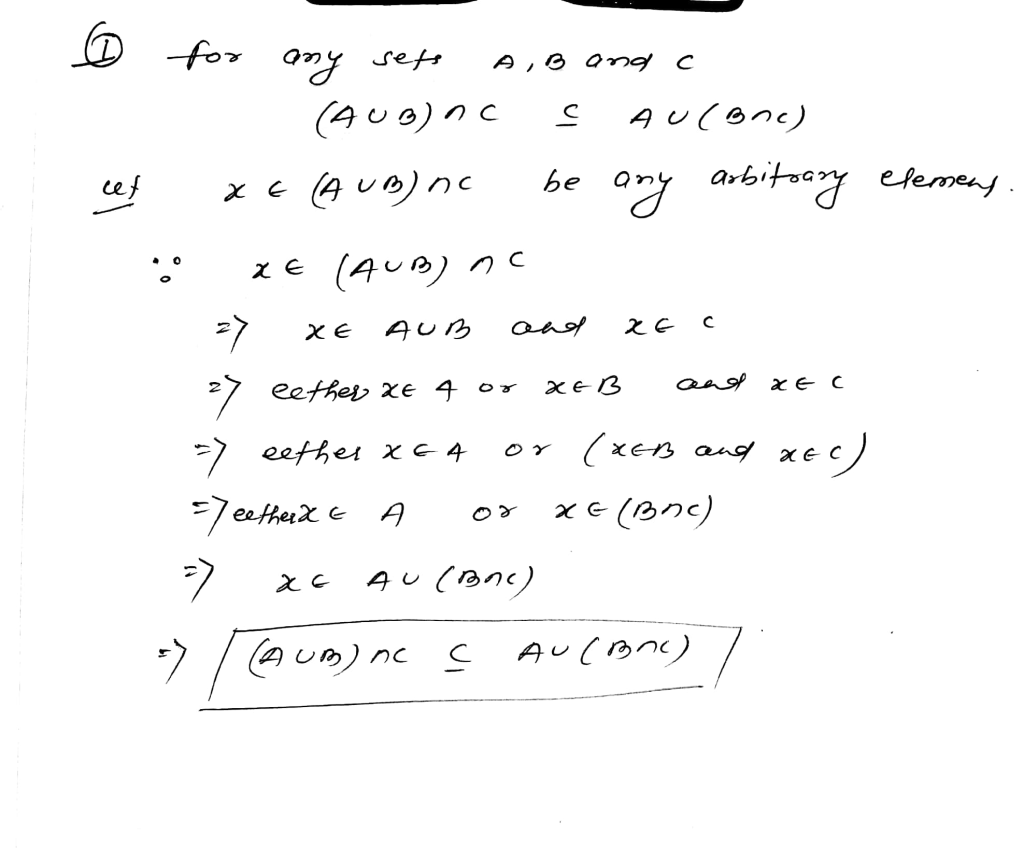 ① for any sets A, B and C
(A∪B)∩C ⊆ A∪(B∩C)
let x ∈ (A∪B)∩C be any arbitrary element.
∵ x ∈ (A∪B)∩C
=> x ∈ A∪B and x ∈ C
=> eether x ∈ A or x ∈ B and x ∈ C
=> eether x ∈ A or (x ∈ B and x ∈ C)
=> eether x ∈ A or x ∈ (B∩C)
=> x ∈ A∪(B∩C)
=> (A∪B)∩C ⊆ A∪(B∩C)